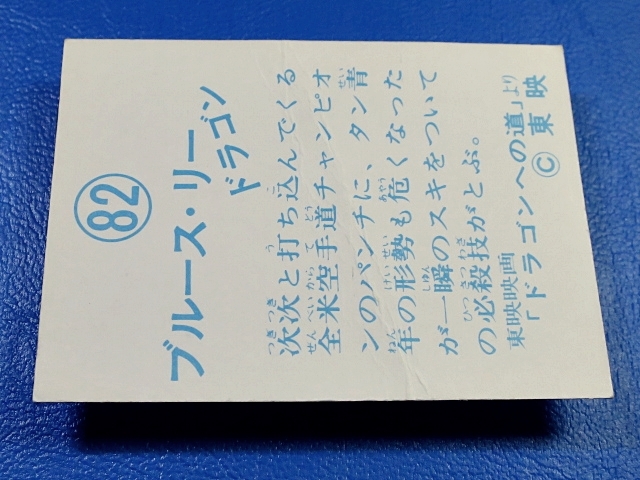 82
ブルース・リー
ドラゴン
次次と打ち込んでくる
全米空手道チャンピオ
ンのパンチに、タン青
年の形勢も危くなった
が一瞬のスキをついて
の必殺技がとぶ。
東映映画
「ドラゴンへの道」より
©東映